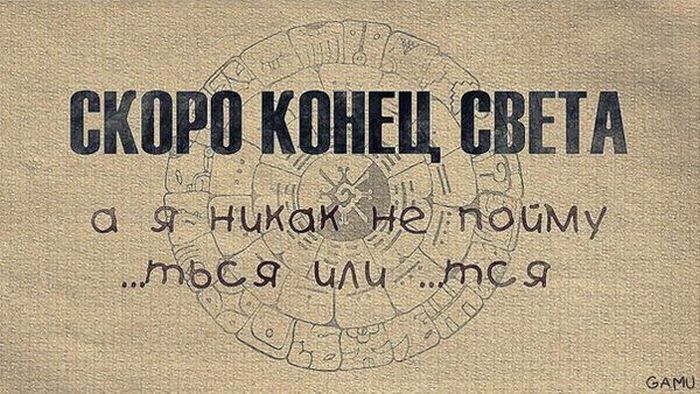 СКОРО КОНЕЦ СВЕТА
а я никак не пойму
...ться или ...тся
GAMU